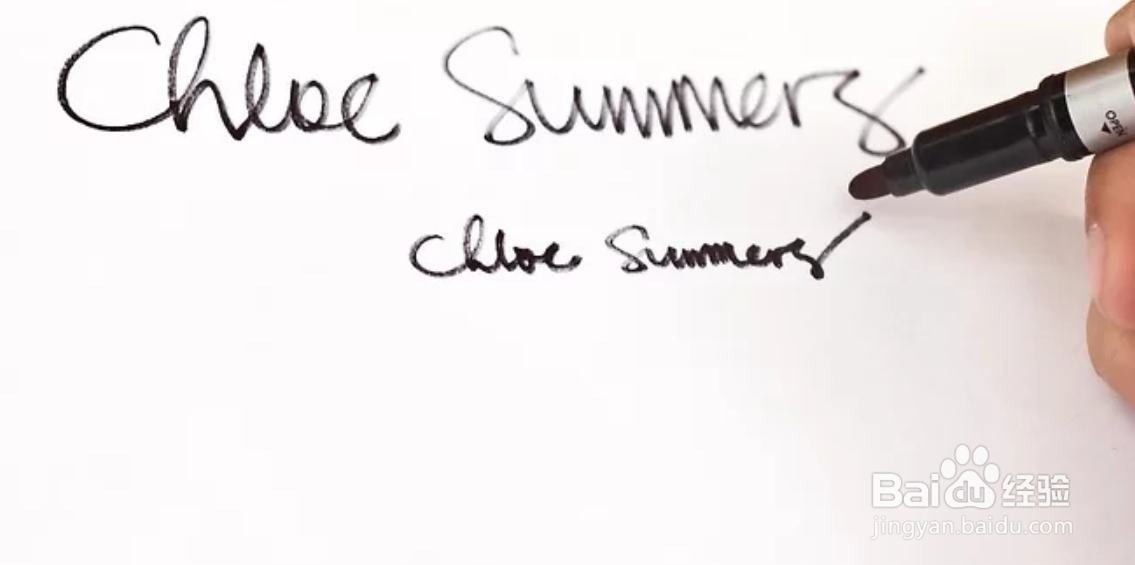 Chloe Summers
OPEN
Chloe Summers
Baidu 经验
jingyan.baidu.com